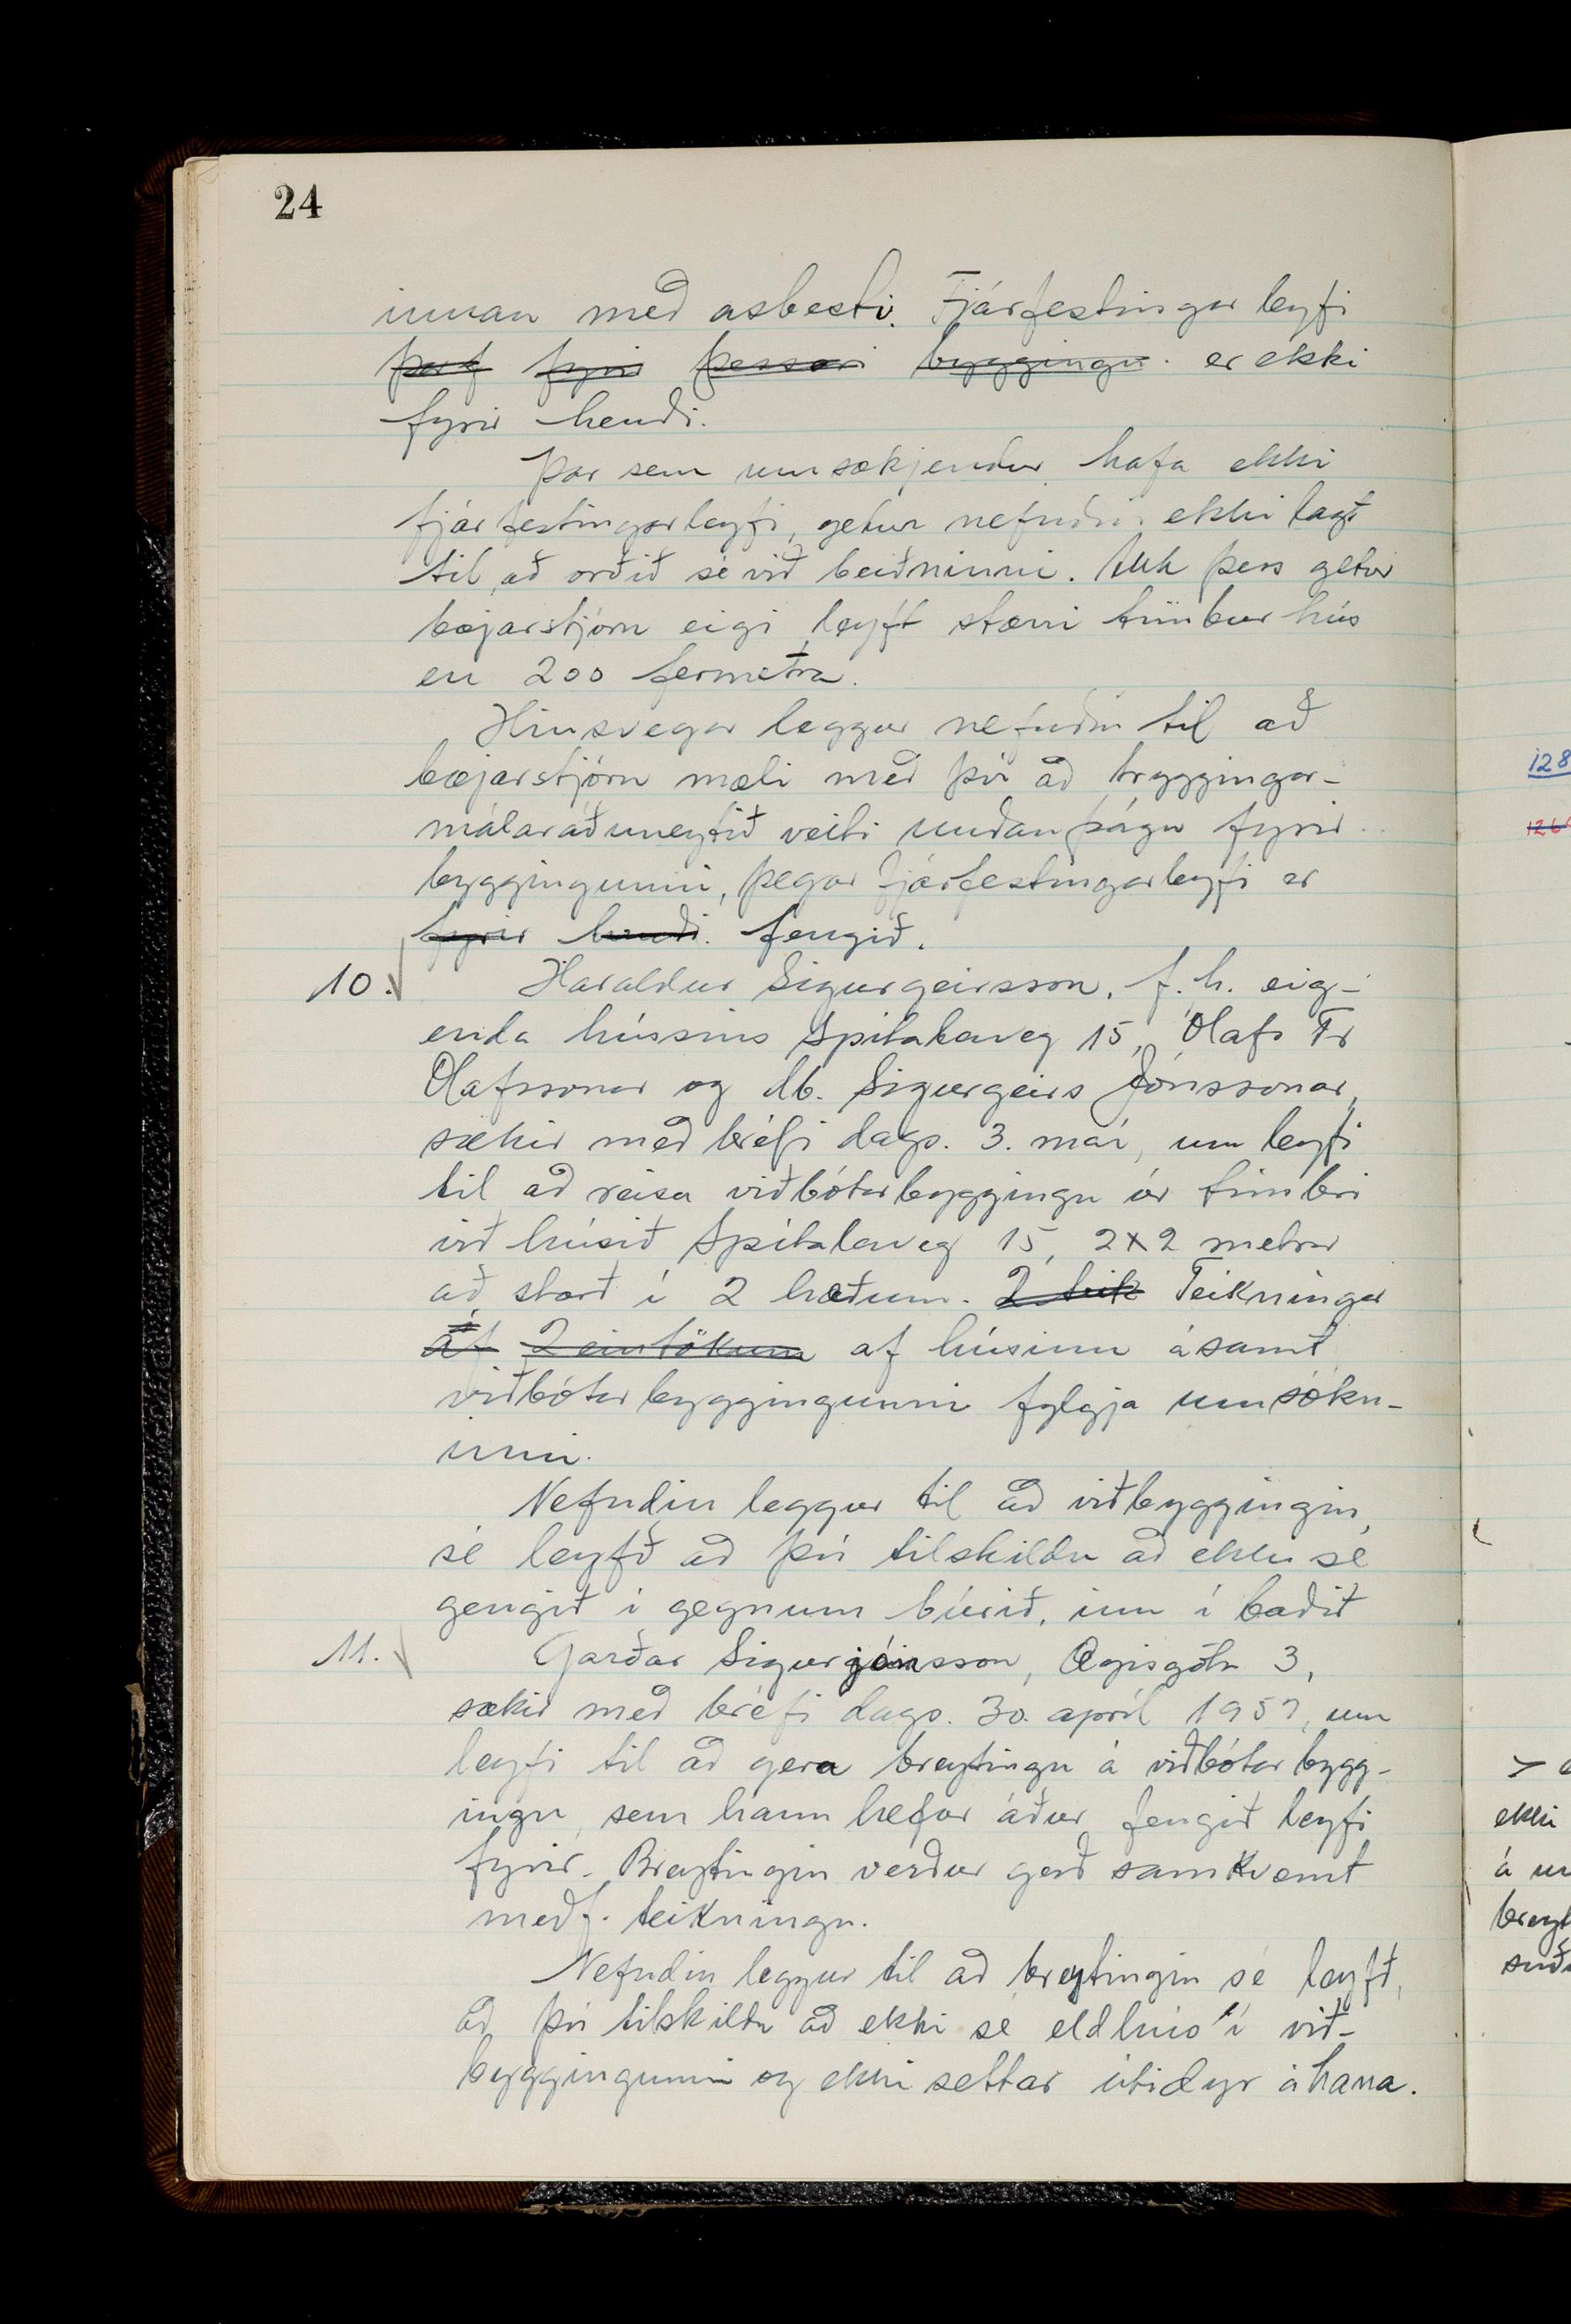 24
innan með asbesti. Fjárfestingar leyfi
þarf fyrir þessari byggingu. er ekki
fyrir hendi.
Þar sem umsækjendur hafa ekki
fjárfestingarleyfi, getur nefndin ekki lagt
til, að orðið sé við beiðninni. Auk þess getur
bæjarstjórn eigi leyft stærri timbur hús
en 200 fermetra.
Hinsvegar leggur nefndin til að
bæjarstjórn mæli með því að byggingar-
málaráðuneytið veiti undanþágu fyrir
byggingunni, þegar fjárfestingarleyfi er
fyrir hendi. fengið.
10. Haraldur Sigurgeirsson, f.h. eig-
enda hússins Spítalaveg 15, Ólafs Fr
Ólafssonar og db. Sigurgeirs Jónssonar,
sækir með bréfi dags. 3. maí, um leyfi
til að reisa viðbótarbyggingu úr timbri
við húsið Spítalaveg 15, 2x2 metrar
að stærð í 2 hæðum. 2 teik Teikningar
af 2 eintökum af húsinu ásamt
viðbótarbyggingunni fylgja umsókn-
inni.
Nefndin leggur til að viðbyggingin,
sé leyfð að því tilskildu að ekki sé
gengið í gegnum búrið, inn í baðið
11. Garðar Sigurjónsson, Ægisgötu 3,
sækir með bréfi dags. 30. apríl 1957, um
leyfi til að gera breytingu á viðbótar bygg-
ingu, sem hann hefur áður fengið leyfi
fyrir. Breytingin verður gerð samkvæmt
meðf. teikningu.
Nefndin leggur til að breytingin sé leyfð,
að því tilskildu að ekki sé eldhús í við-
byggingunni og ekki settar útidyr á hana.
128
126
ekki
á
breyt